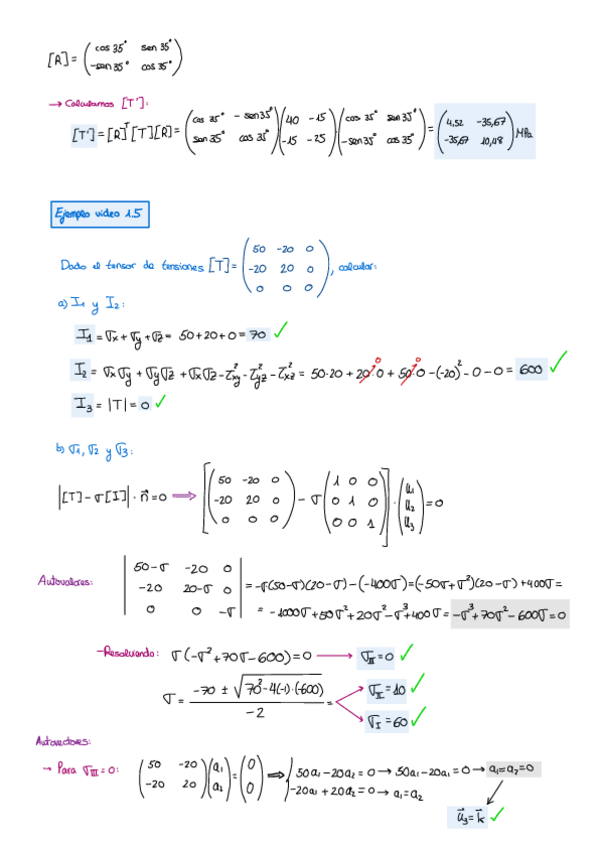 [R] = ( cos 35° sen 35° / -sen 35° cos 35° )
→ Calculamos [T']:
[T'] = [R]ᵀ [T] [R] = ( cos 35° -sen 35° / sen 35° cos 35° ) ( 40 -15 / -15 -25 ) · ( cos 35° sen 35° / -sen 35° cos 35° ) = ( 4,52 -35,67 / -35,67 10,48 ) MPa
Ejemplo video 1.5
Dado el tensor de tensiones [T] = ( 50 -20 0 / -20 20 0 / 0 0 0 ), calcular:
a) I₁ y I₂:
I₁ = σx + σy + σz = 50 + 20 + 0 = 70 ✓
I₂ = σxσy + σyσz + σxσz - τ²xy - τ²yz - τ²xz = 50·20 + 20·0 + 50·0 - (-20)² - 0 - 0 = 600 ✓
I₃ = |T| = 0 ✓
b) σ₁, σ₂ y σ₃:
|[T] - σ[I]| · n⃗ = 0 ⟹ [ ( 50 -20 0 / -20 20 0 / 0 0 0 ) - σ ( 1 0 0 / 0 1 0 / 0 0 1 ) ] · ( u₁ / u₂ / u₃ ) = 0
Autovalores: | 50-σ -20 0 / -20 20-σ 0 / 0 0 -σ | = -σ(50-σ)(20-σ) - (-400σ) = (-50σ+σ²)(20-σ) + 400σ =
= -1000σ + 50σ² + 20σ² - σ³ + 400σ = -σ³ + 70σ² - 600σ = 0
- Resolviendo: σ(-σ² + 70σ - 600) = 0 → σIII = 0 ✓
σ = (-70 ± √(70² - 4(-1)·(-600))) / -2 = σII = 10 ✓
σI = 60 ✓
Autovectores:
→ Para σIII = 0: ( 50 -20 / -20 20 ) ( a₁ / a₂ ) = ( 0 / 0 ) ⟹ { 50a₁ - 20a₂ = 0 → 50a₁ - 20a₁ = 0 → a₁ = a₂ = 0
-20a₁ + 20a₂ = 0 → a₁ = a₂
u⃗₃ = k⃗ ✓